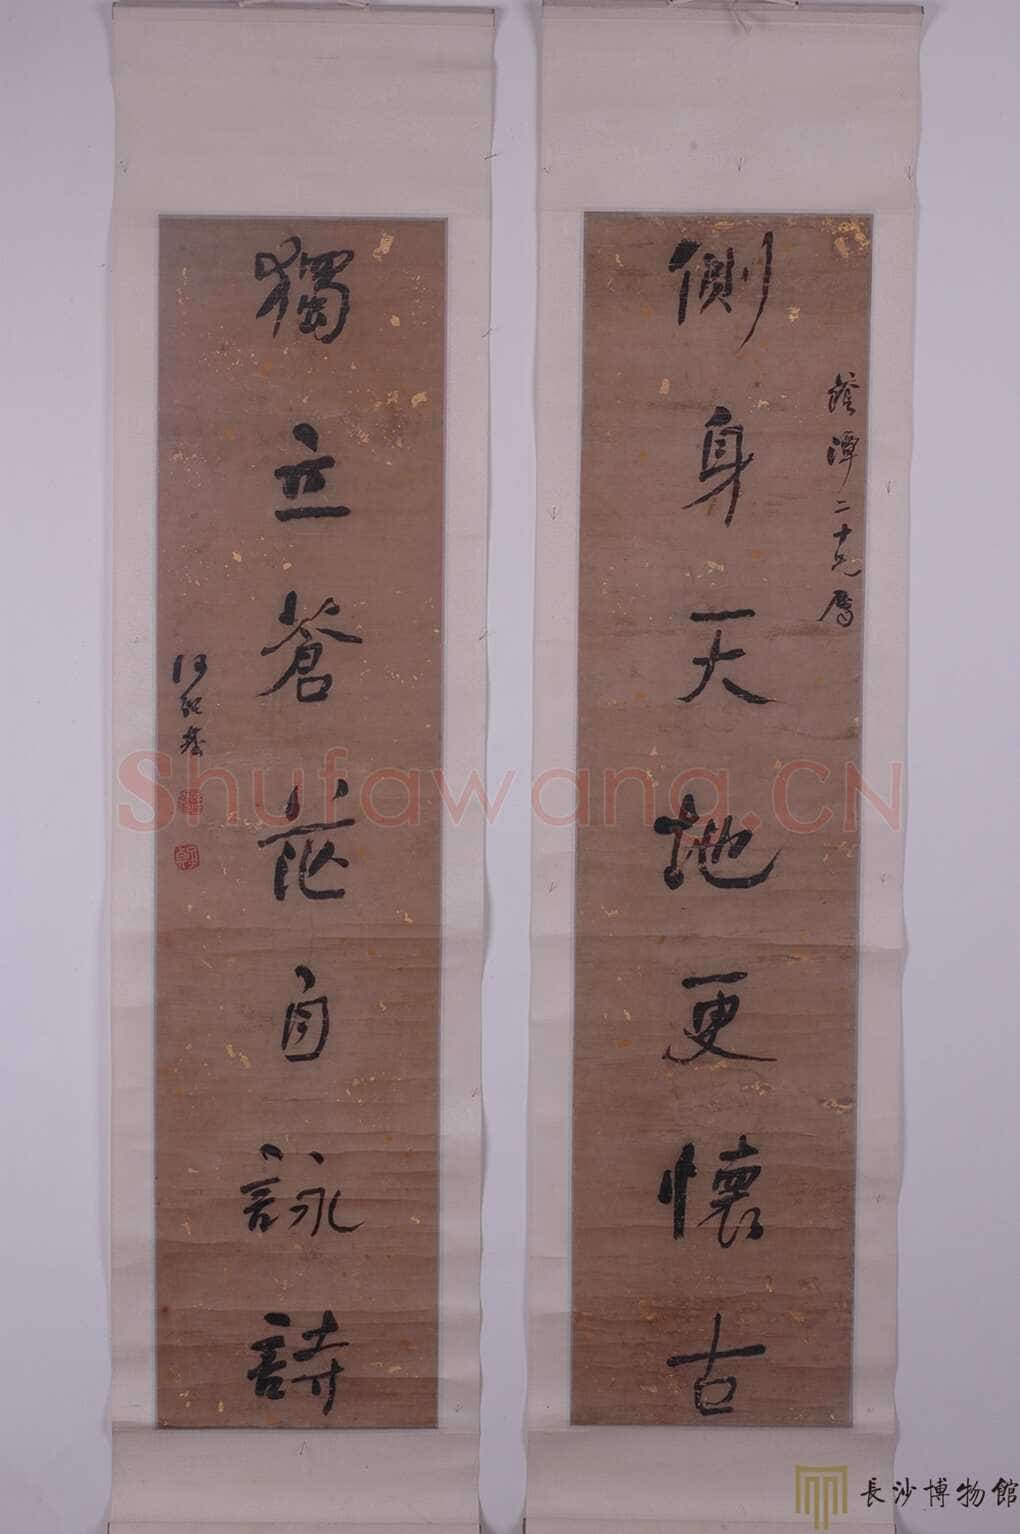 側身天地更懷古
蔭潭二十兄屬
獨立蒼茫自詠詩
何紹基
Shufawang.CN
長沙博物館